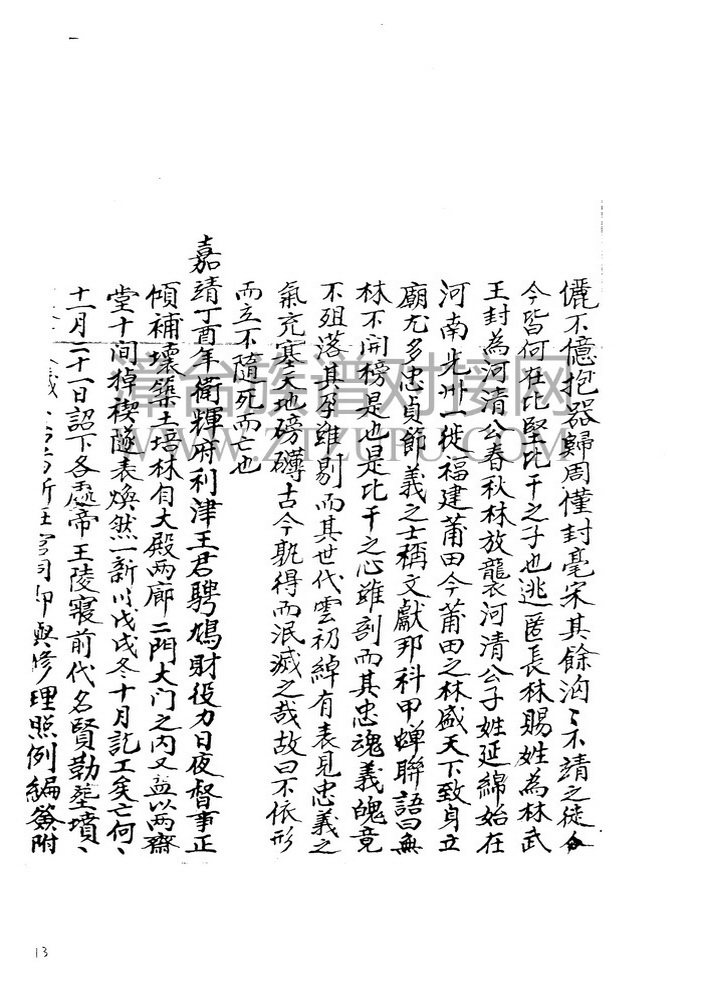 儷不億抱器歸周僅封亳宋其餘洶〻不靖之徒
今皆何在比堅比干之子也逃匿長林賜姓為林武
王封為河清公春秋林放襲河清公子姓延綿始在
河南光卅一徙福建莆田今莆田之林盛天下致身立
廟尤多忠貞節義之士稱文獻邦科甲蟬聯語曰無
林不開榜是也是比干之心雖剖而其忠魂義魄竟
不殂落其孕雖剔而其世代雲礽綽有表見忠義之
氣充塞天地磅礴古今孰得而泯滅之哉故曰不依形
而立不隨死而亡也
嘉靖丁酉年衛輝府利津王君騁鳩財役力日夜督事正
傾補壞築土培林自大殿两廊二門大门之内又益以两齋
堂十间棹楔隧表煥然一新以戊戌冬十月訖工矣亡何、
十一月二十一日詔下各處帝王陵寢前代名賢勅塋墳、
官司即與修理照例編簽附
漳台族谱对接网
WWW.ZTZUPU.COM
13